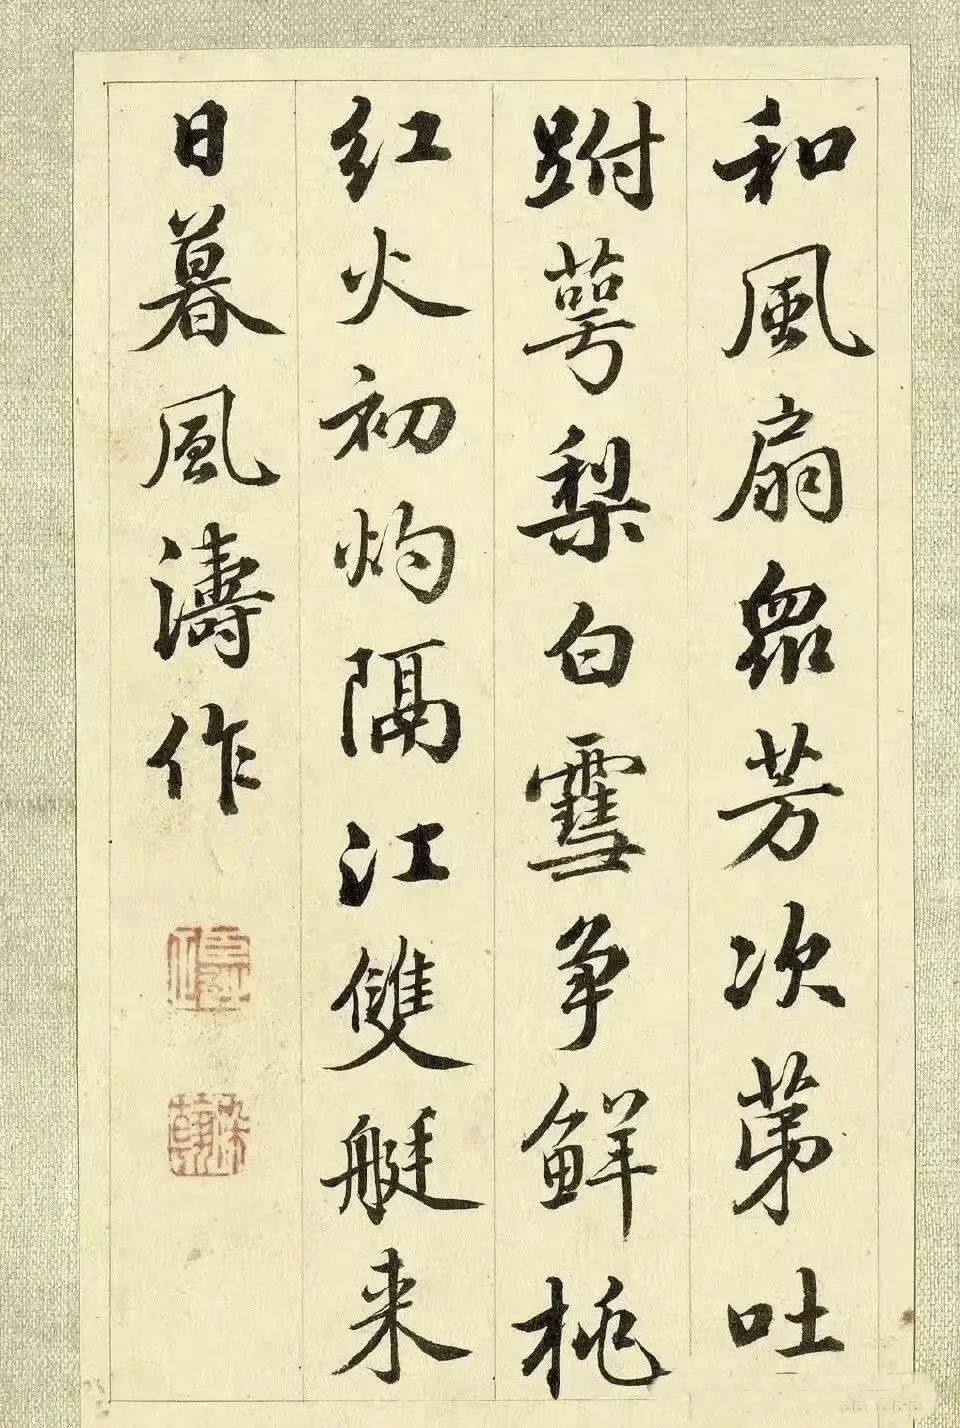 和風扇眾芳次第吐
跗萼梨白雪争鮮桃
红火初灼隔江雙艇来
日暮風濤作